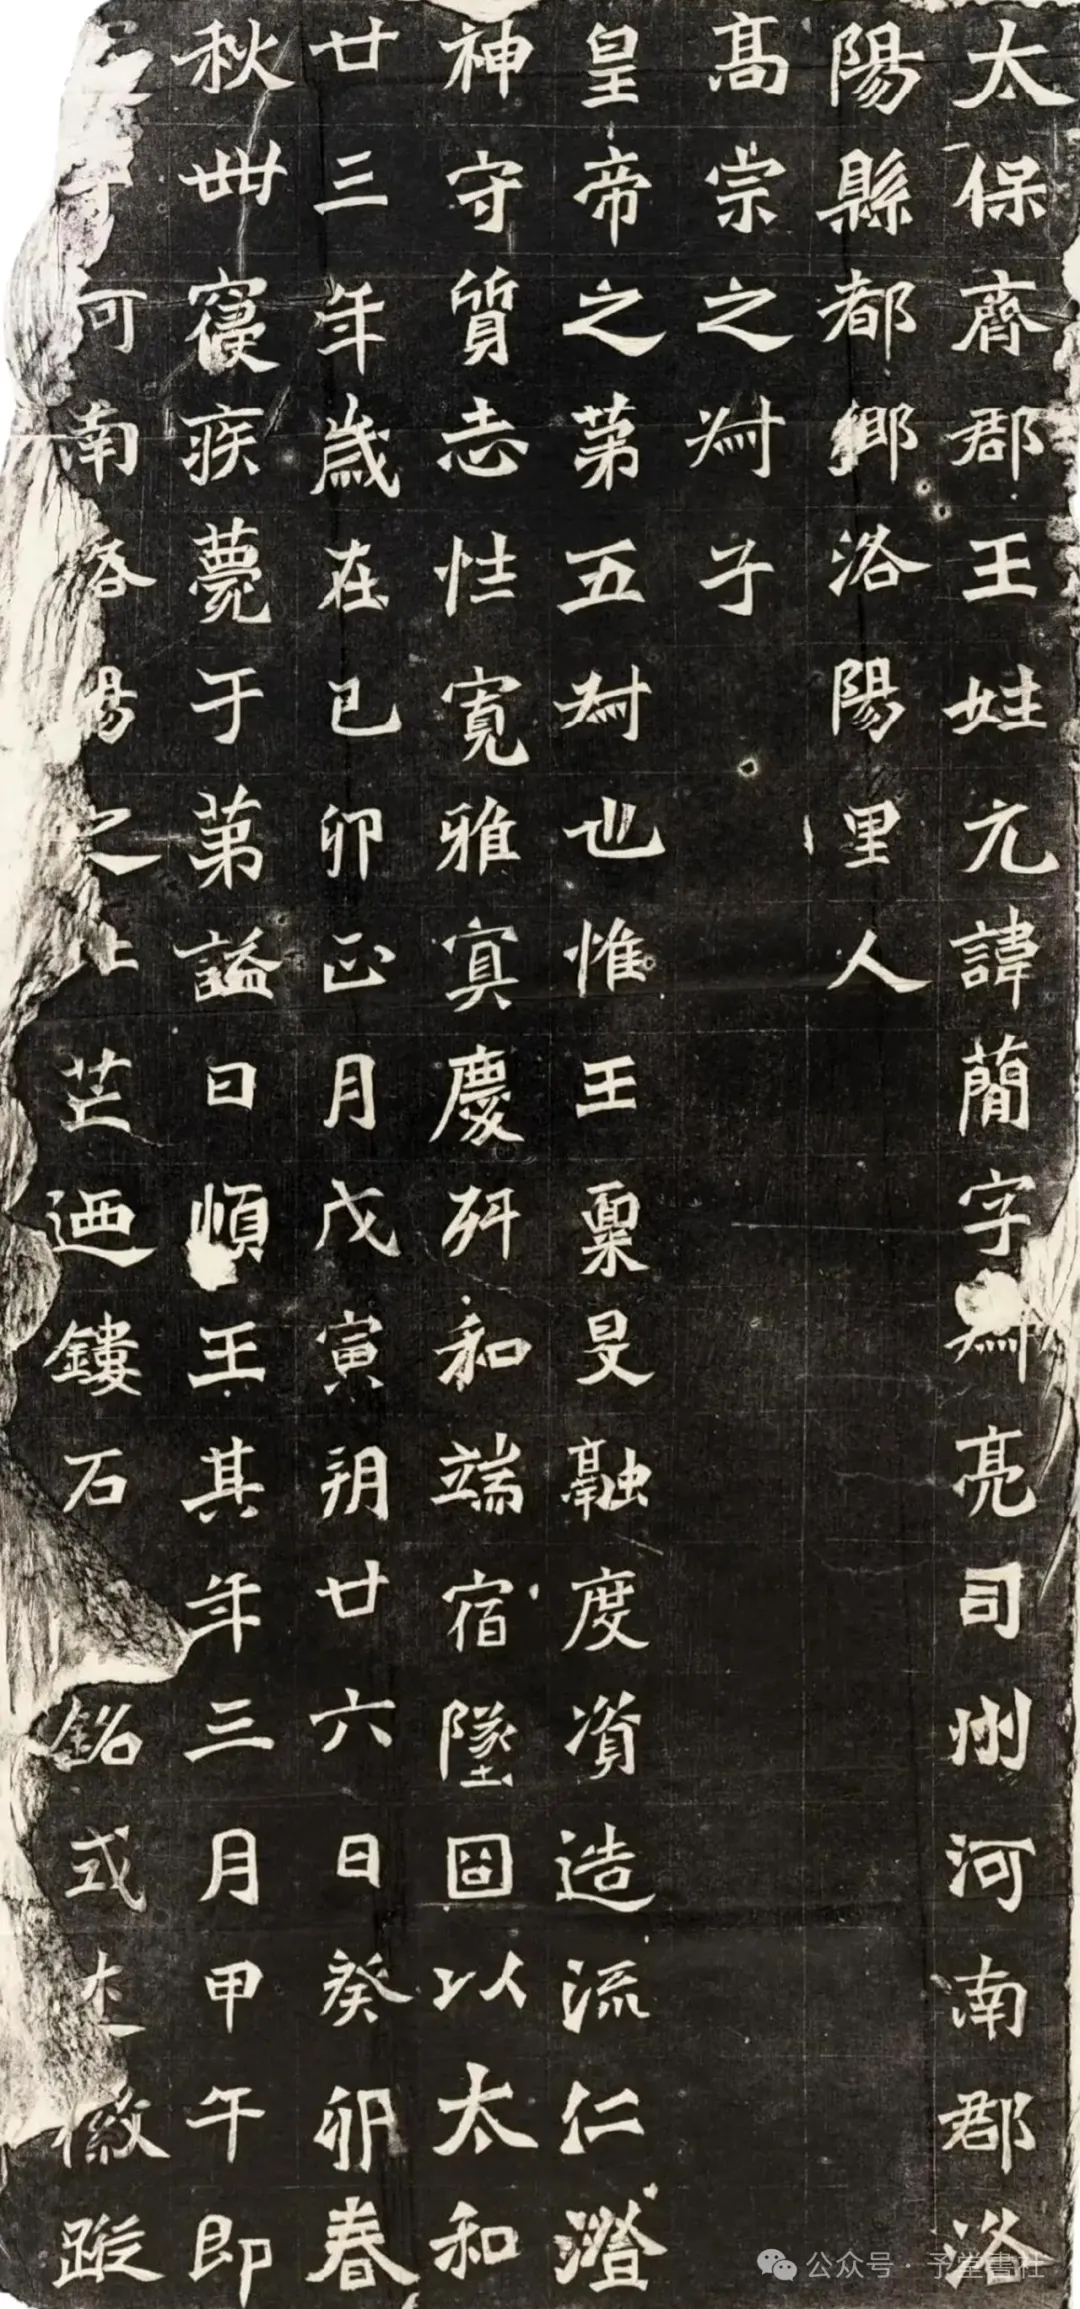 太保齊郡王姓元諱簡字叔亮司州河南郡洛
陽縣都鄉洛陽里人
高宗之叔子
皇帝之第五叔也惟王稟旻融度資造流仁澄
神守質志性寬雅寘慶舛和端宿墜固以太和
廿三年歲在己卯正月戊寅朔廿六日癸卯春
秋卌寢疾薨于第謚曰順王其年三月甲午即
于河南洛陽之北芒迺鏤石銘式述徽蹤
公众号·予堂書社